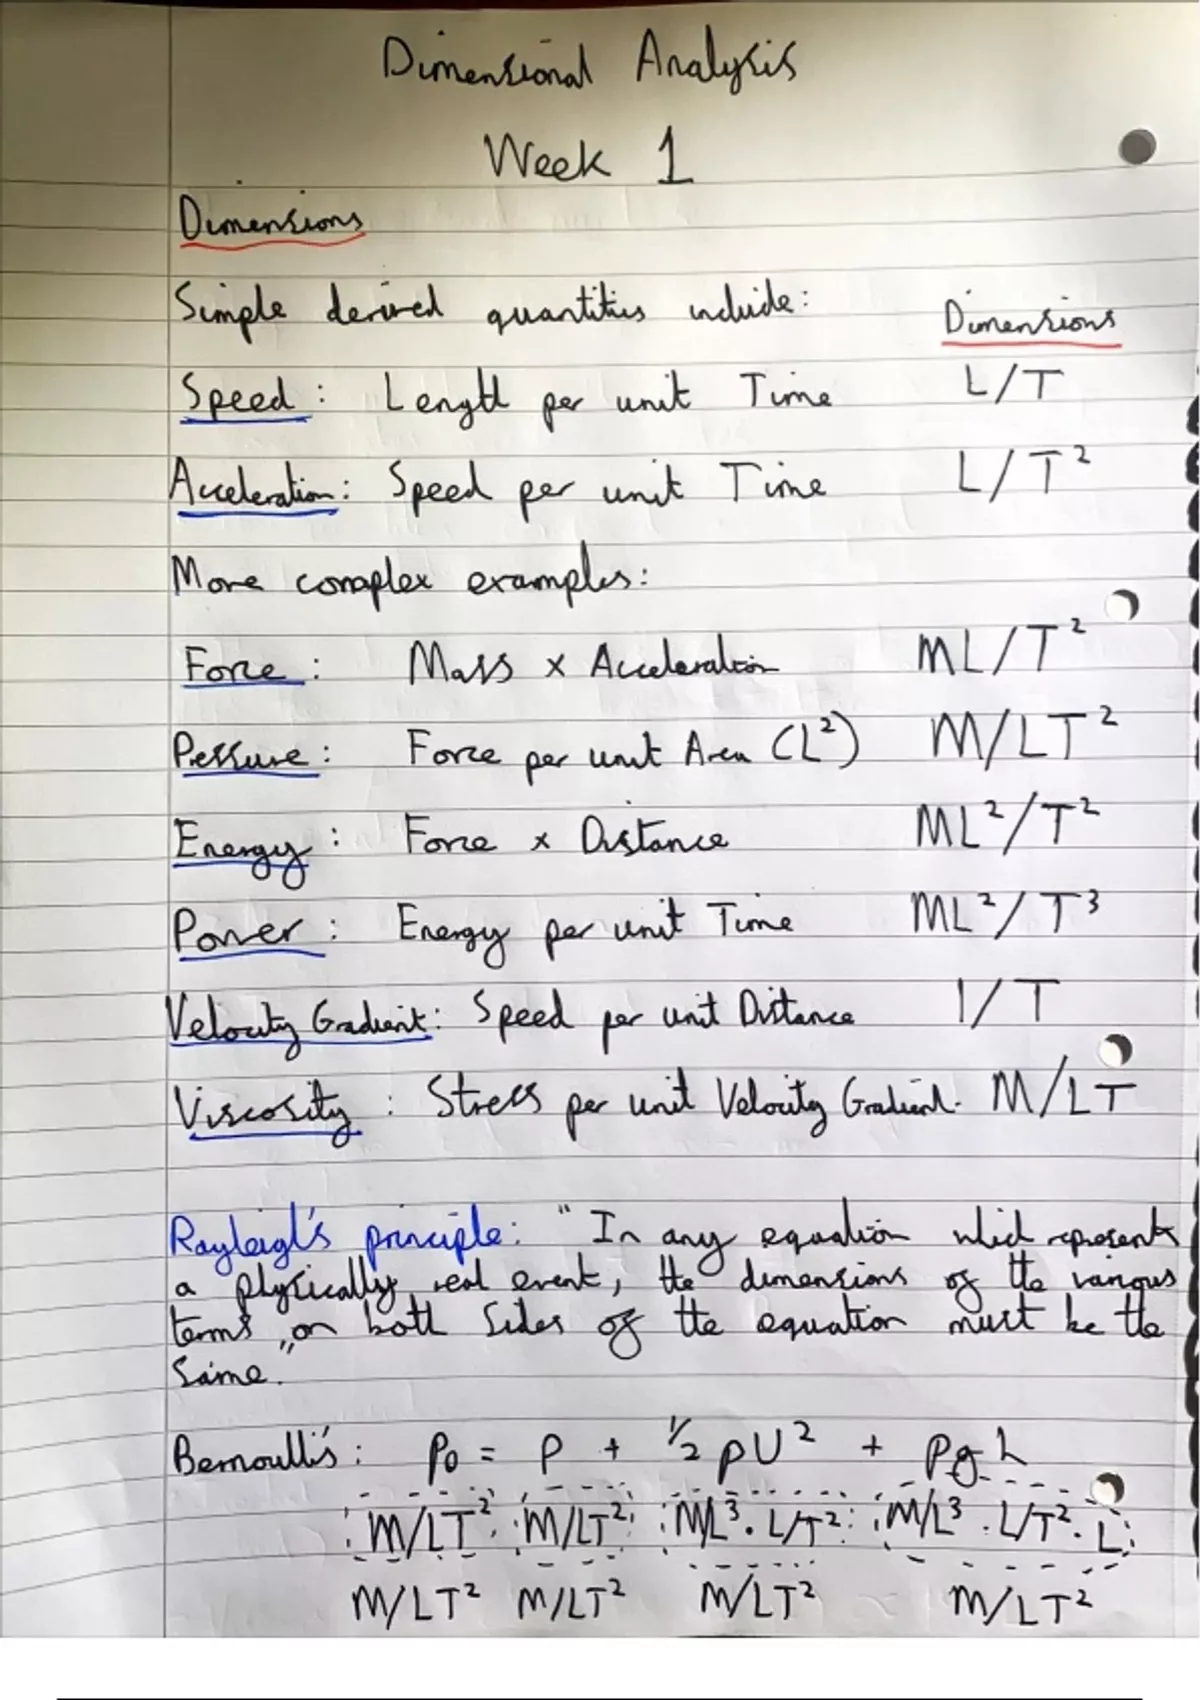 Dimensional Analysis
Week 1
Dimensions
Simple derived quantities include: Dimensions
Speed: Length per unit Time L/T
Acceleration: Speed per unit Time L/T²
More complex examples:
Force: Mass × Acceleration ML/T²
Pressure: Force per unit Area (L²) M/LT²
Energy: Force × Distance ML²/T²
Power: Energy per unit Time ML²/T³
Velocity Gradient: Speed per unit Distance 1/T
Viscosity: Stress per unit Velocity Gradient. M/LT
Rayleigh's principle: "In any equation which represents
a physically real event, the dimensions of the various
terms on both sides of the equation must be the
same."
Bernoulli's: P₀ = P + ½ρU² + ρgh
M/LT² M/LT² M/L³ · L/T² M/L³ · L/T² · L
M/LT² M/LT² M/LT² M/LT²